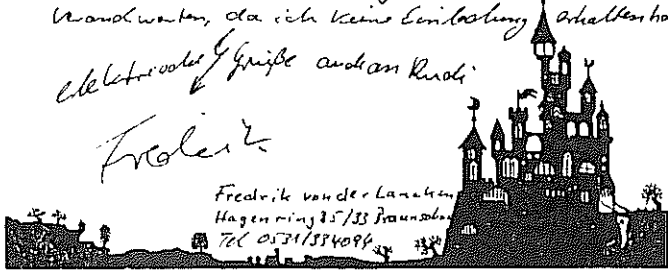 da ich keine Einladung erhalten ha
elektrische Grüße auch an Rudi
Fredrik
Fredrik von der
Hagenring 85/33 Braunschw
Tel 0531/334094